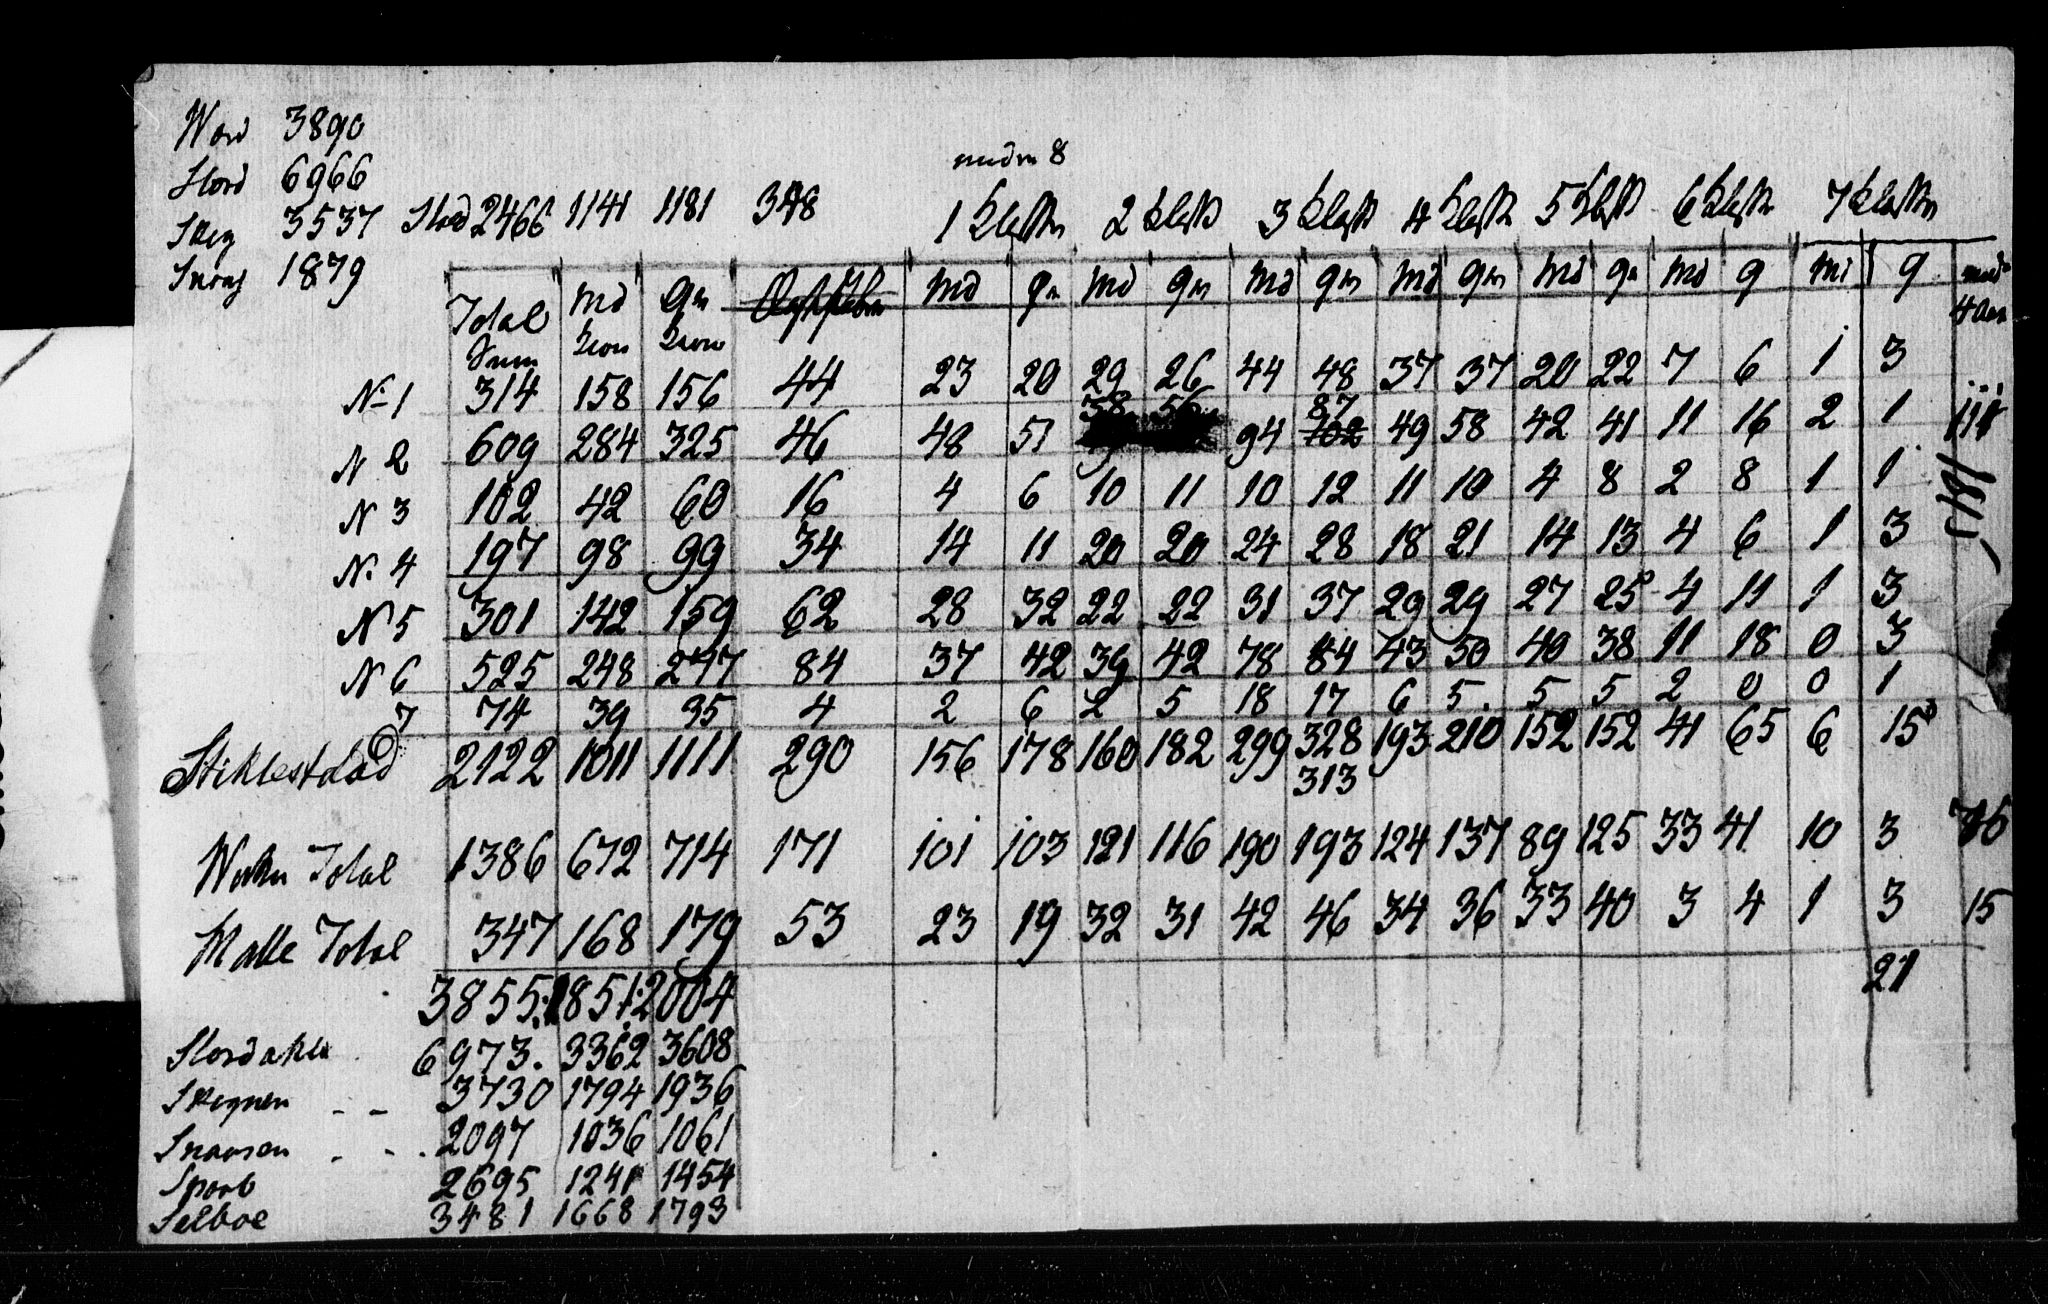 Werd 3890
Stord 6966
Skog 3537 Stod 2466 1141 1181 348
Snaas 1879
under 8
1 Klasse 2 Klass 3 Klass 4 Klasse 5 Klass 6 Klasse 7 Klassen
Total Sum Md Kion Qu Kion Md Qu Md Qu Md Qu Md Qu Md Qu Md Q Md Q
No 1 314 158 156 44 23 20 29 26 44 48 37 37 20 22 7 6 1 3
N 2 609 284 325 46 48 51 38 56 94 87 102 49 58 42 41 11 16 2 1
N 3 102 42 60 16 4 6 10 11 10 12 11 10 4 8 2 8 1 1
No 4 197 98 99 34 14 11 20 20 24 28 18 21 14 13 4 6 1 3
N 5 301 142 159 62 28 32 22 22 31 37 29 29 27 25 4 11 1 3
N 6 525 248 277 84 37 42 39 42 78 84 43 50 40 38 11 18 0 3
7 74 39 35 4 2 6 2 5 18 17 6 5 5 5 2 0 0 1
Stiklestdad 2122 1011 1111 290 156 178 160 182 299 328 193 210 152 152 41 65 6 15
313
Total 1386 672 714 171 101 103 121 116 190 193 124 137 89 125 33 41 10 3 76
Malle Total 347 168 179 53 23 19 32 31 42 46 34 36 33 40 3 4 1 3 15
21
3855 : 1851 : 2004
Stordahlen 6973. 3362 3608
Skognen - - 3730 1794 1936
Snaasen - - 2097 1036 1061
Sparb 2695 1241 1454
Selboe 3481 1668 1793